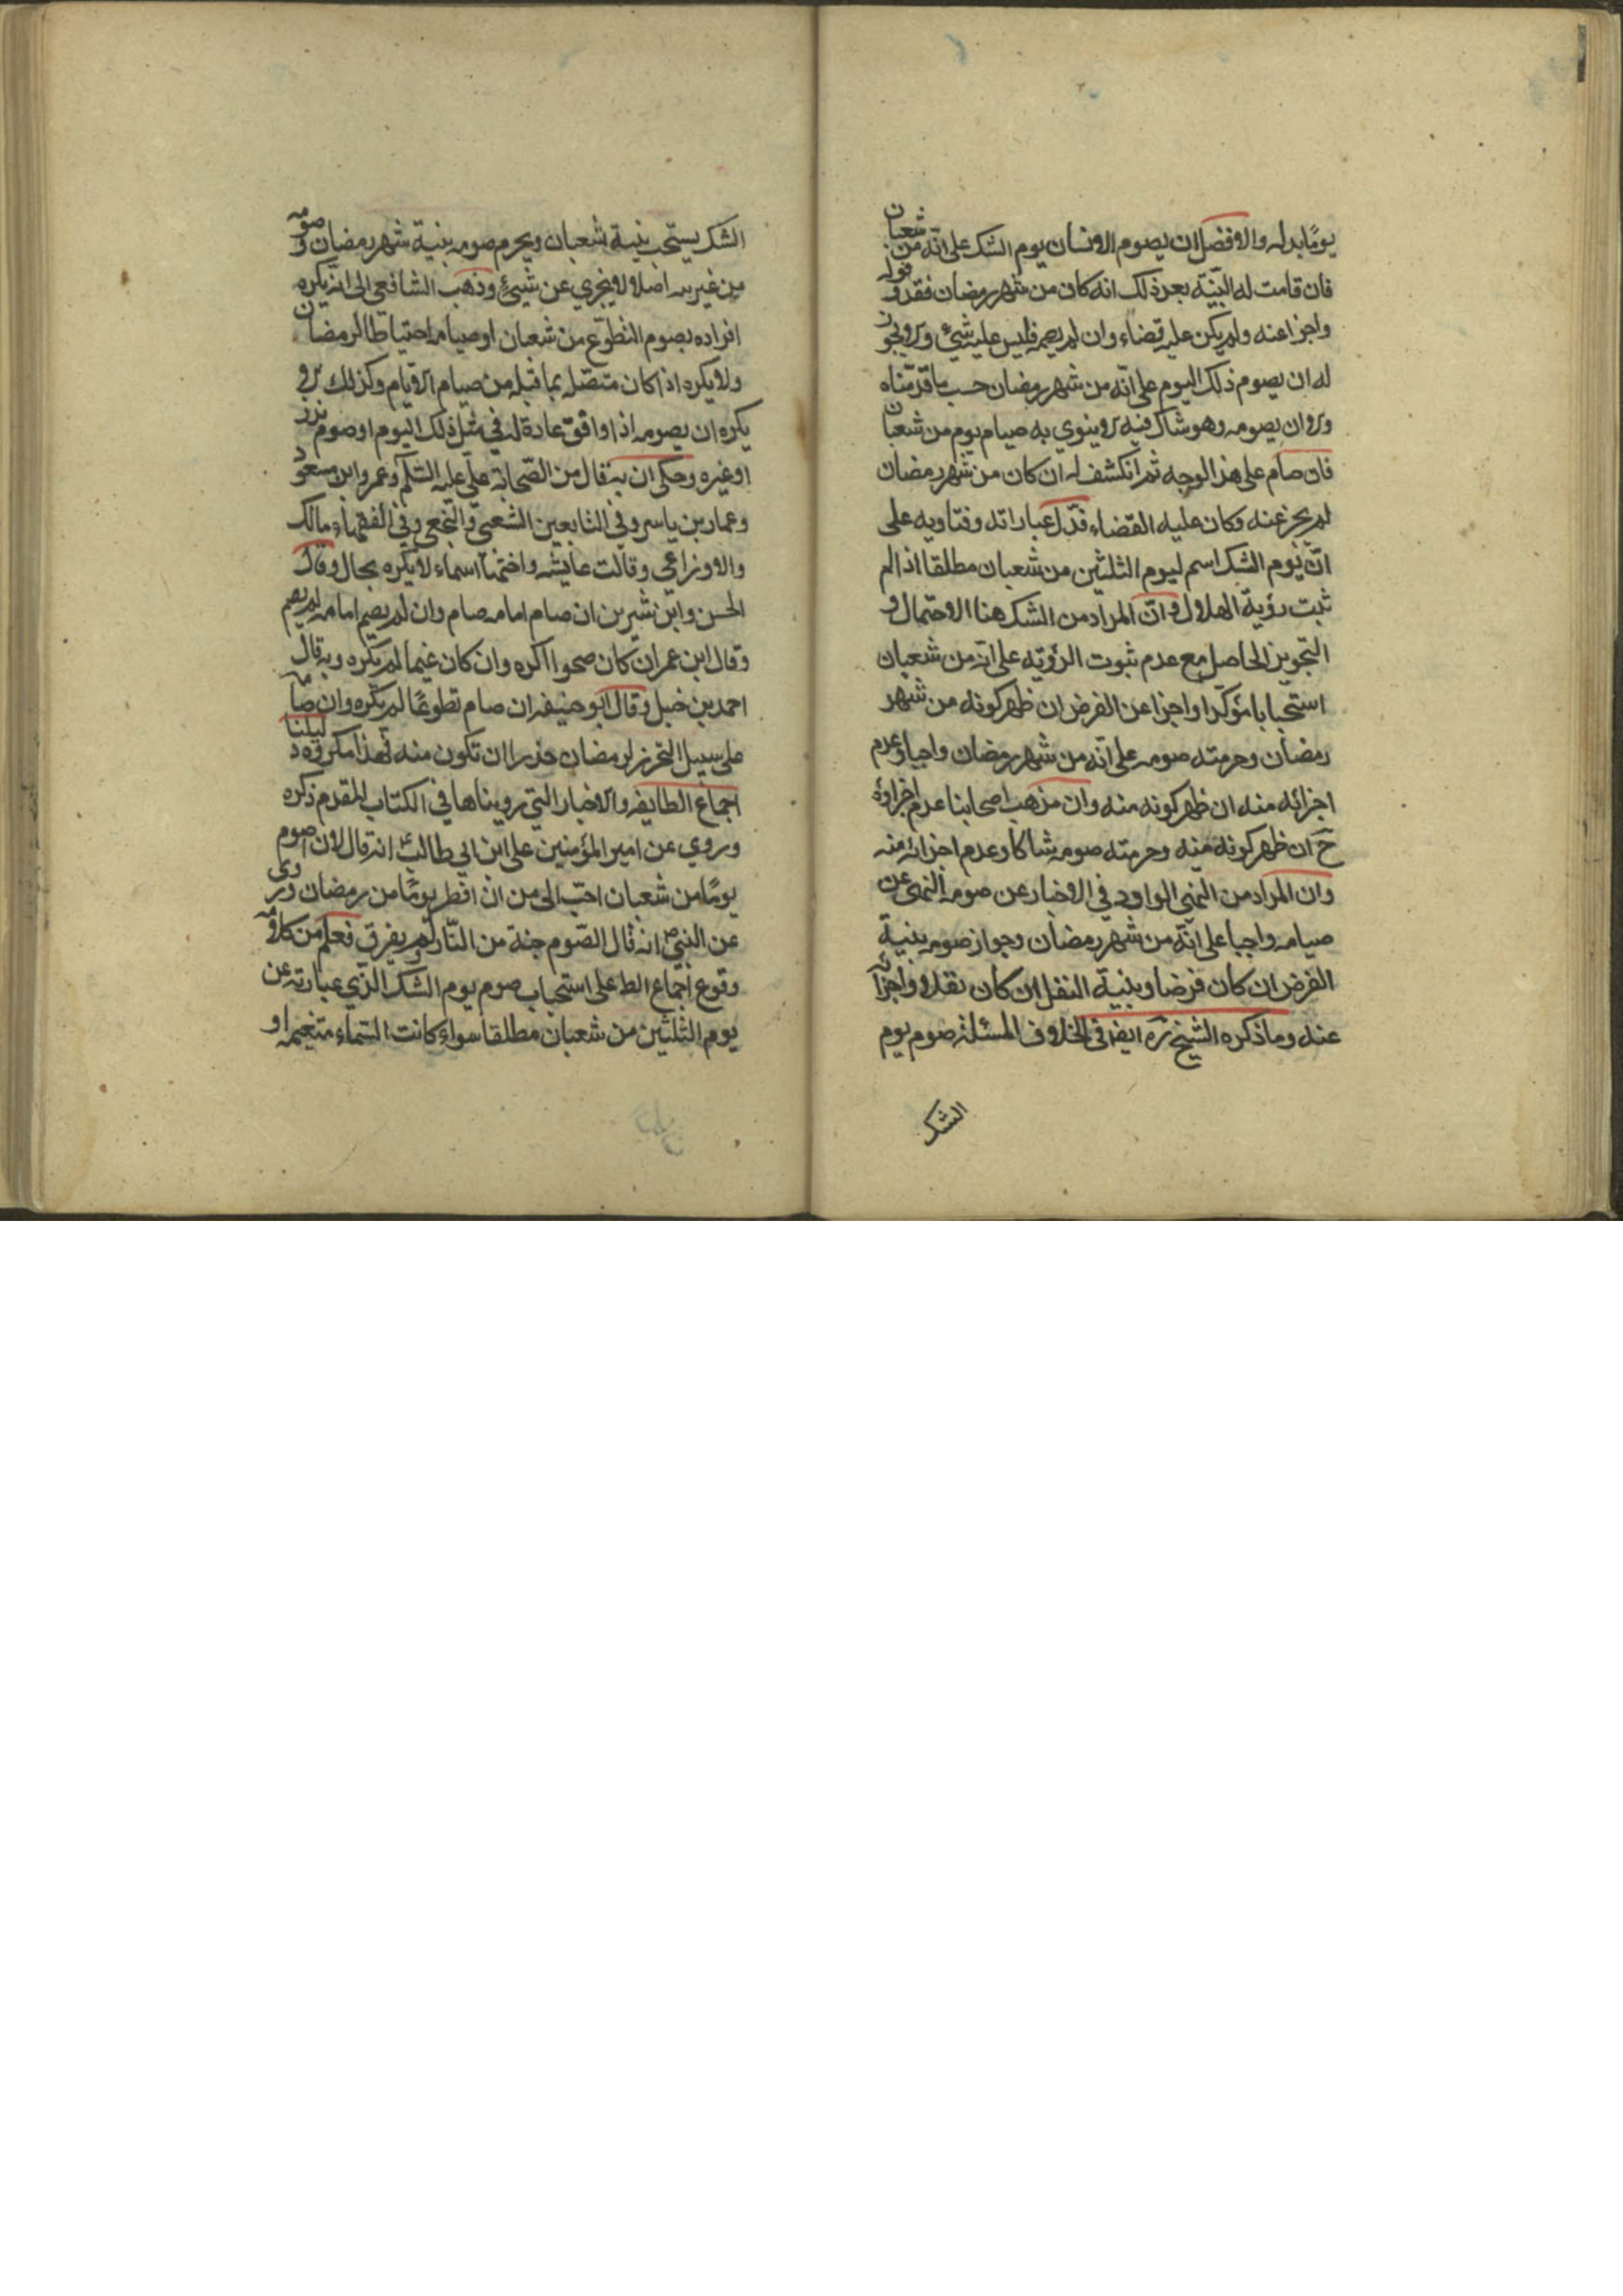 يومًا بدله والافضل ان يصوم الانسان يوم الشك على انّه من شعبان
فان قامت له البيّنة بعد ذلك انه كان من شهر رمضان فقد وفق له
واجزا عنه ولم يكن عليه قضاء وان لم يصمه فليس عليه شئ ولا يجوز
له ان يصوم ذلك اليوم على انّه من شهر رمضان حسب ما قدّمناه
ولا ان يصومه وهو شاك فيه لا ينوي به صيام يوم من شعبان
فان صام على هذا الوجه ثم انكشف له ان كان من شهر رمضان
لم يجز عنه وكان عليه القضاء فدّل عباراته وفتاويه على
انّ يوم الشك اسم ليوم الثلثين من شعبان مطلقا اذا لم
ثبت رؤية الهلال وانّ المراد من الشك هنا الاحتمال و
التجويز الحاصل مع عدم ثبوت الرؤيّة على انّه من شعبان
استحبابا مؤكّدا واجزا عن الفرض ان ظهر كونه من شهر
رمضان وحرمته صومه على انّه من شهر رمضان واجبا وعدم
اجزائه منه ان ظهر كونه منه وان مذهب اصحابنا عدم اجزاؤه
ح ان ظهر كونه منه وحرمته صومه شاكا وعدم اجزائه منه
وان المراد من النهي الوارد في الاخبار عن صومه النهى عن
صيامه واجبا على انّه من شهر رمضان وجواز صومه بنية
الفرض ان كان فرضا وبنية النفل ان كان نفلا واجزائه
عنه وما ذكره الشيخ ره ايضا في الخلاف المسئلة صوم يوم
الشك
الشك يستحب بنية شعبان ويحرم صومه بنية شهر رمضان وصومه
من غير نية اصلا لا يجزي عن شيئ وذهب الشافعي الى انّه يكره
افراده بصوم التطوّع من شعبان او صيامه احتياطا لرمضان
ولا يكره اذا كان متصّله بما قبله من صيام الايام وكذلك لا
يكره ان يصومه اذا وافق عادة له في مثل ذلك اليوم او صوم نذر
او غيره وحكى ان به قال من الصّحابة علّى عليه السّلم وعمر وابن مسعود
وعمار بن ياسر وفي التابعين الشعبيّ والنّخعي وفي الفقهاء مالك
والاوزاعي وقالت عايشه واختها اسماء لا يكره بحال وقال
الحسن وابن شيرين ان صام امامه صام وان لم يصم امامه لم يصم
وقال ابن عمر ان كان صحوا اكره وان كان غيما لم يكره وبه قال
احمد بن حنبل وقال ابو حنيفه ان صام تطوعًا لم يكره وان صام
على سبيل التحرز لرمضان حذرا ان تكون منه فهذا مكروه دليلنا
اجماع الطايفه والاخبار التي رويناها في الكتاب المقدم ذكره
وروي عن امير المؤمنين على ابن ابي طالب انه قال لان اصوم
يومًا من شعبان احبّ الى من ان افطر يومًا من رمضان وروى
عن النبي ص انه قال الصّوم جنة من النّار ولم يفرق فعلم من كلامه
وقوع اجماع الط على استحباب صوم يوم الشك الذّي عبارته عن
يوم الثلثين من شعبان مطلقا سواء كانت السّماء متغيمه او